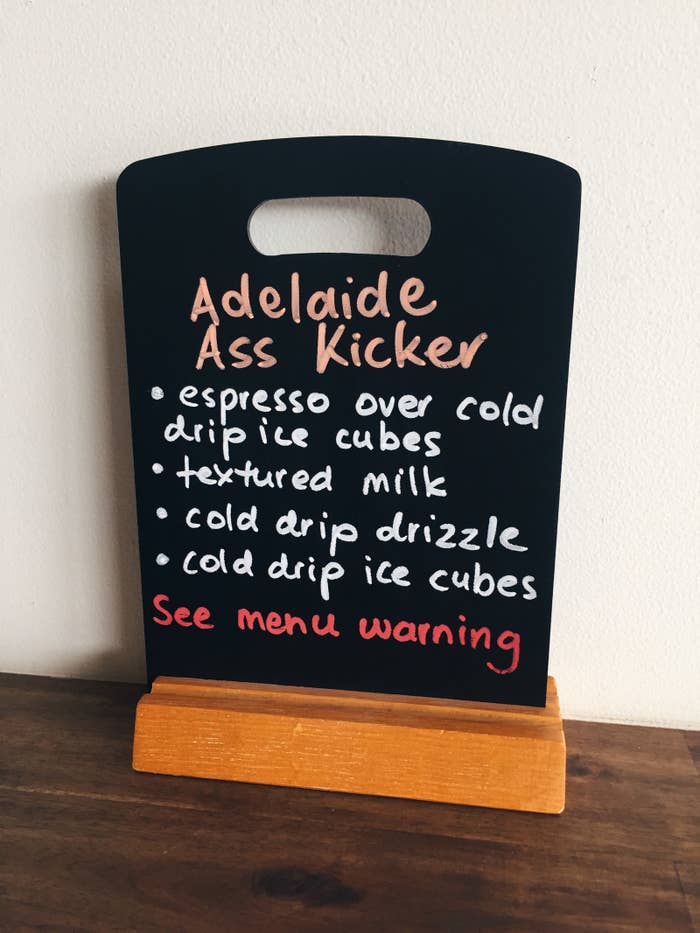 Adelaide
Ass Kicker
• espresso over cold
drip ice cubes
• textured milk
• cold drip drizzle
• cold drip ice cubes
See menu warning